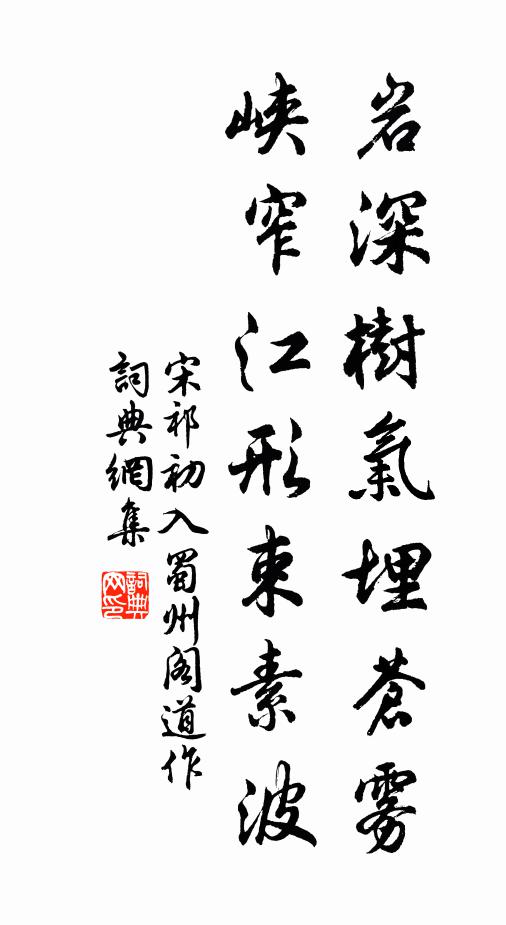 岩深樹氣埋蒼雾
峽窄江形束素波
宋祁初入蜀州阁道作
詞典網集
詞典
网印